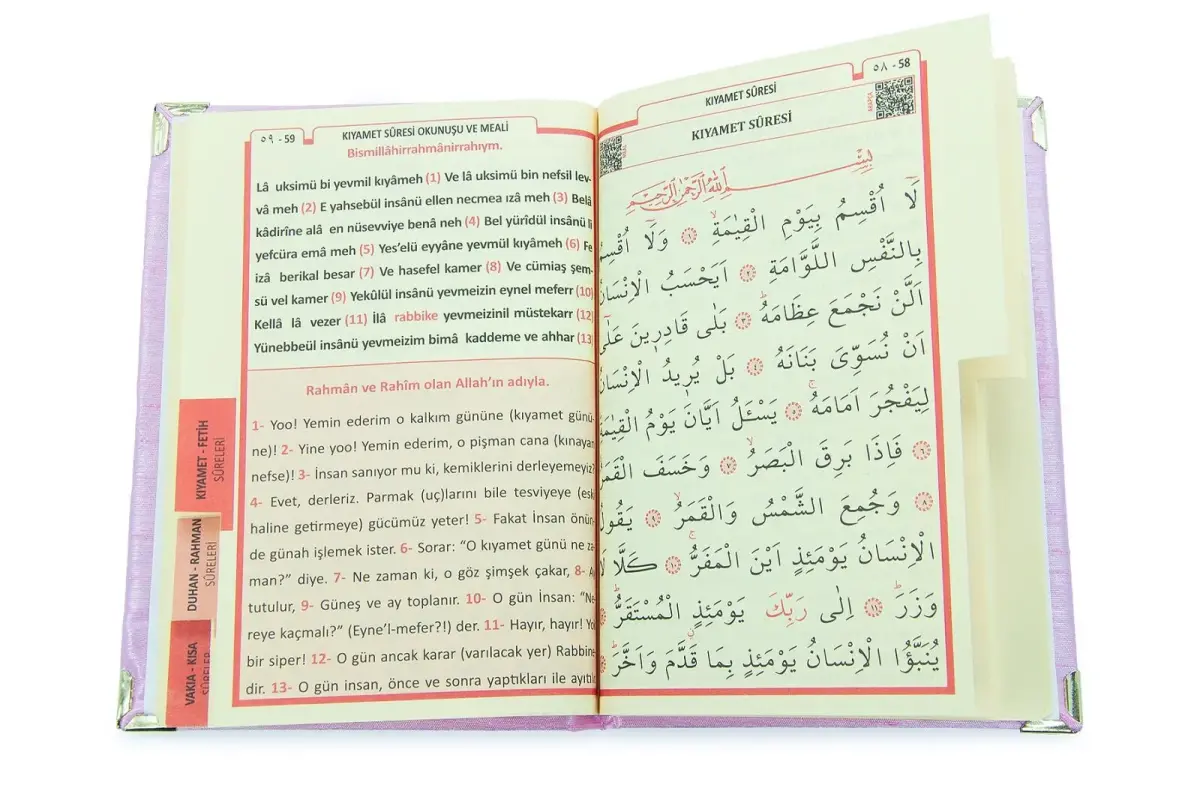 ٥٨ - 58
KIYAMET SÛRESİ
KIYAMET SÛRESİ
بِسْمِ اللّٰهِ الرَّحْمٰنِ الرَّحٖيمِ
لَٓا اُقْسِمُ بِيَوْمِ الْقِيٰمَةِۙ ﴿١﴾ وَلَٓا اُقْسِمُ
بِالنَّفْسِ اللَّوَّامَةِ ﴿٢﴾ اَيَحْسَبُ الْاِنْسَانُ
اَلَّنْ نَجْمَعَ عِظَامَهُؕ ﴿٣﴾ بَلٰى قَادِرٖينَ عَلٰٓى
اَنْ نُسَوِّىَ بَنَانَهُ ﴿٤﴾ بَلْ يُرٖيدُ الْاِنْسَانُ
لِيَفْجُرَ اَمَامَهُۚ ﴿٥﴾ يَسْـَٔلُ اَيَّانَ يَوْمُ الْقِيٰمَةِ
﴿٦﴾ فَاِذَا بَرِقَ الْبَصَرُۙ ﴿٧﴾ وَخَسَفَ الْقَمَرُ
﴿٨﴾ وَجُمِعَ الشَّمْسُ وَالْقَمَرُۙ ﴿٩﴾ يَقُولُ
الْاِنْسَانُ يَوْمَئِذٍ اَيْنَ الْمَفَرُّۚ ﴿١٠﴾ كَلَّا لَا
وَزَرَؕ ﴿١١﴾ اِلٰى رَبِّكَ يَوْمَئِذٍ الْمُسْتَقَرُّؕ
يُنَبَّؤُا الْاِنْسَانُ يَوْمَئِذٍ بِمَا قَدَّمَ وَاَخَّرَؕ
٥٩ - 59
KIYAMET SÛRESİ OKUNUŞU VE MEALİ
Bismillâhirrahmânirrahıym.
Lâ uksimü bi yevmil kıyâmeh (1) Ve lâ uksimü bin nefsil lev-
vâ meh (2) E yahsebül insânü ellen necmea ızâ meh (3) Belâ
kâdirîne alâ en nüsevviye benâ neh (4) Bel yürîdül insânü li
yefcüra emâ meh (5) Yes’elü eyyâne yevmül kıyâmeh (6) Fe
izâ berikal besar (7) Ve hasefel kamer (8) Ve cümiaş şem-
sü vel kamer (9) Yekûlül insânü yevmeizin eynel meferr (10)
Kellâ lâ vezer (11) İlâ rabbike yevmeizinil müstekarr (12)
Yünebbeül insânü yevmeizim bimâ kaddeme ve ahhar (13)
Rahmân ve Rahîm olan Allah’ın adıyla.
1- Yoo! Yemin ederim o kalkım gününe (kıyamet günü-
ne)! 2- Yine yoo! Yemin ederim, o pişman cana (kınayan
nefse)! 3- İnsan sanıyor mu ki, kemiklerini derleyemeyiz?
4- Evet, derleriz. Parmak (uç)larını bile tesviyeye (eski
haline getirmeye) gücümüz yeter! 5- Fakat İnsan önün-
de günah işlemek ister. 6- Sorar: “O kıyamet günü ne za-
man?” diye. 7- Ne zaman ki, o göz şimşek çakar, 8- Ay
tutulur, 9- Güneş ve ay toplanır. 10- O gün İnsan: “Ne-
reye kaçmalı?” (Eyne’l-mefer?!) der. 11- Hayır, hayır! Yo
bir siper! 12- O gün ancak karar (varılacak yer) Rabbine-
dir. 13- O gün insan, önce ve sonra yaptıkları ile ayıtılı
KIYAMET - FETİH
SÛRELERİ
DUHAN - RAHMAN
SÛRELERİ
VAKIA - KISA
SÛRELER